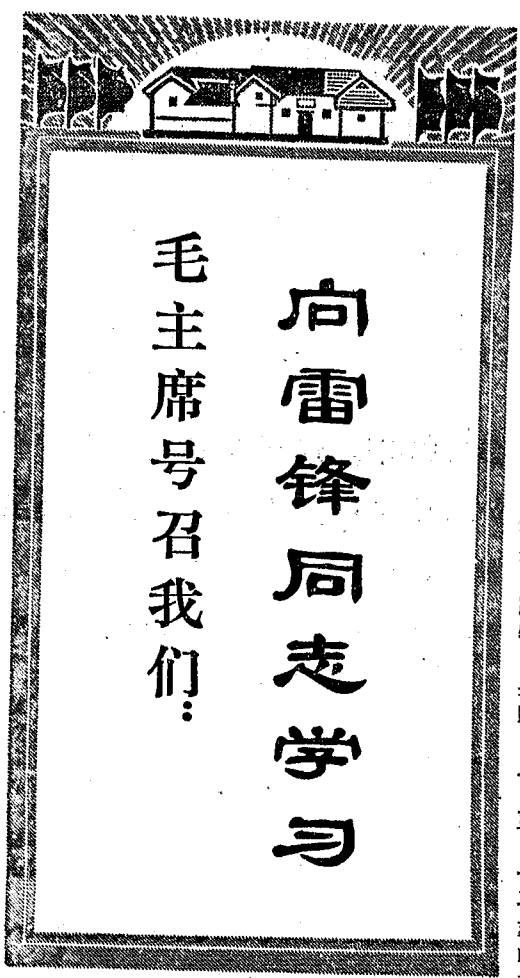 毛主席号召我们：
向雷锋同志学习